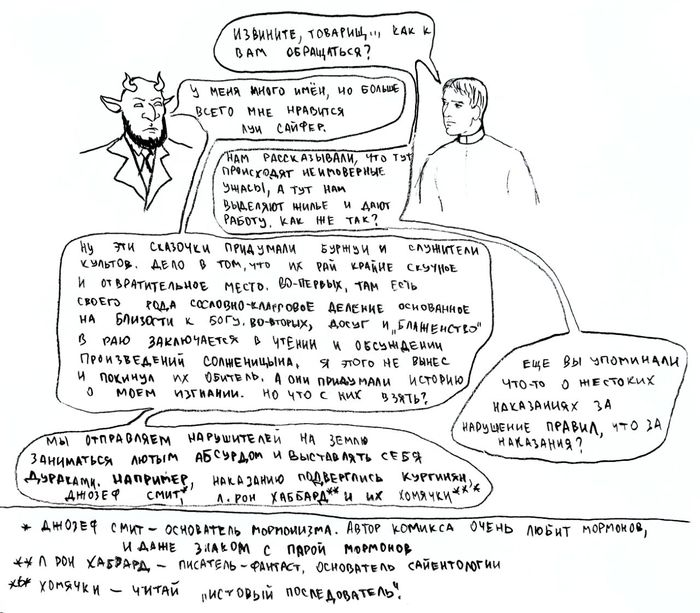 ИЗВИНИТЕ, ТОВАРИЩ... КАК К
ВАМ ОБРАЩАТЬСЯ?
У МЕНЯ МНОГО ИМЁН, НО БОЛЬШЕ
ВСЕГО МНЕ НРАВИТСЯ
ЛУИ САЙФЕР.
НАМ РАССКАЗЫВАЛИ, ЧТО ТУТ
ПРОИСХОДЯТ НЕИМОВЕРНЫЕ
УЖАСЫ, А ТУТ НАМ
ВЫДЕЛЯЮТ ЖИЛЬЕ И ДАЮТ
РАБОТУ. КАК ЖЕ ТАК?
НУ ЭТИ СКАЗОЧКИ ПРИДУМАЛИ БУРЖУИ И СЛУЖИТЕЛИ
КУЛЬТОВ. ДЕЛО В ТОМ, ЧТО ИХ РАЙ КРАЙНЕ СКУЧНОЕ
И ОТВРАТИТЕЛЬНОЕ МЕСТО. ВО-ПЕРВЫХ, ТАМ ЕСТЬ
СВОЕГО РОДА СОСЛОВНО-КЛАССОВОЕ ДЕЛЕНИЕ ОСНОВАННОЕ
НА БЛИЗОСТИ К БОГУ. ВО-ВТОРЫХ, ДОСУГ И „БЛАЖЕНСТВО"
В РАЮ ЗАКЛЮЧАЕТСЯ В ЧТЕНИИ И ОБСУЖДЕНИИ
ПРОИЗВЕДЕНИЙ СОЛЖЕНИЦЫНА, Я ЭТОГО НЕ ВЫНЕС
И ПОКИНУЛ ИХ ОБИТЕЛЬ. А ОНИ ПРИДУМАЛИ ИСТОРИЮ
О МОЕМ ИЗГНАНИИ. НО ЧТО С НИХ ВЗЯТЬ?
ЕЩЕ ВЫ УПОМИНАЛИ
ЧТО-ТО О ЖЕСТОКИХ
НАКАЗАНИЯХ ЗА
НАРУШЕНИЕ ПРАВИЛ, ЧТО ЗА
НАКАЗАНИЯ?
МЫ ОТПРАВЛЯЕМ НАРУШИТЕЛЕЙ НА ЗЕМЛЮ
ЗАНИМАТЬСЯ ЛЮТЫМ АБСУРДОМ И ВЫСТАВЛЯТЬ СЕБЯ
ДУРАКАМИ. НАПРИМЕР, НАКАЗАНИЮ ПОДВЕРГЛИСЬ КУРГИНЯН,
ДЖОЗЕФ СМИТ*, Л. РОН ХАББАРД** И ИХ ХОМЯЧКИ***
* ДЖОЗЕФ СМИТ – ОСНОВАТЕЛЬ МОРМОНИЗМА. АВТОР КОМИКСА ОЧЕНЬ ЛЮБИТ МОРМОНОВ,
И ДАЖЕ ЗНАКОМ С ПАРОЙ МОРМОНОВ
** Л РОН ХАББАРД – ПИСАТЕЛЬ-ФАНТАСТ, ОСНОВАТЕЛЬ САЙЕНТОЛОГИИ
*** ХОМЯЧКИ – ЧИТАЙ „ИСТОВЫЙ ПОСЛЕДОВАТЕЛЬ".